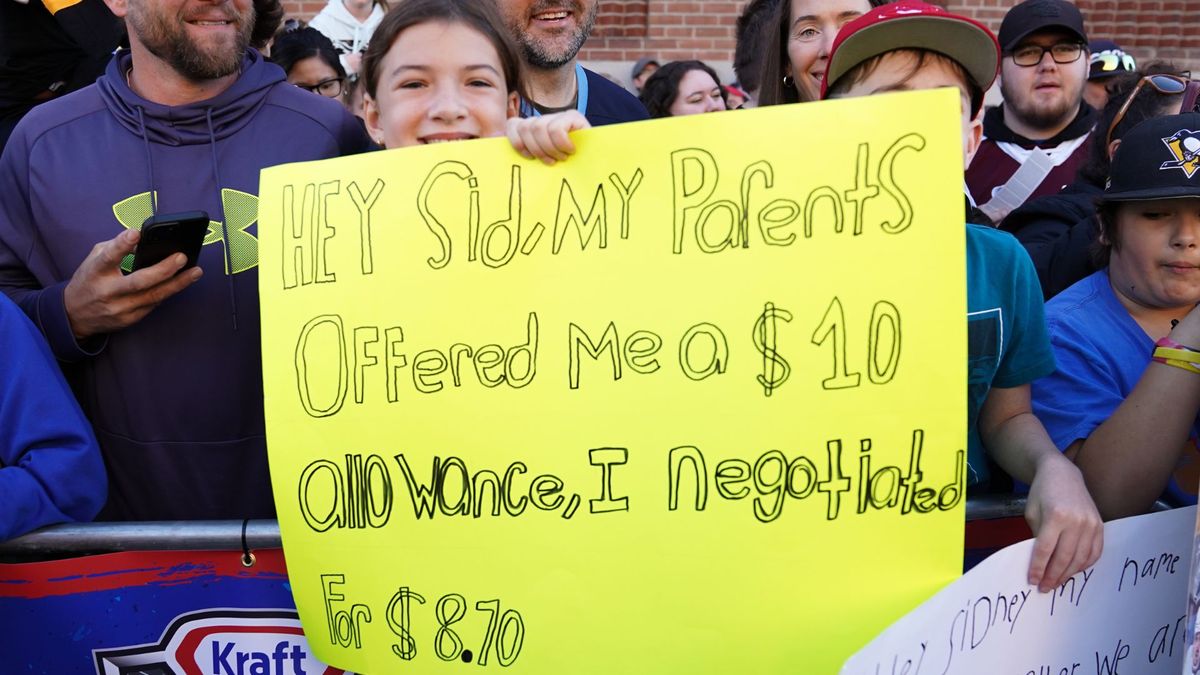 HEY Sid, MY Parents
Offered Me a $10
allowance, I negotiated
For $8.70
Kraft
Hey Sidney my name
We are